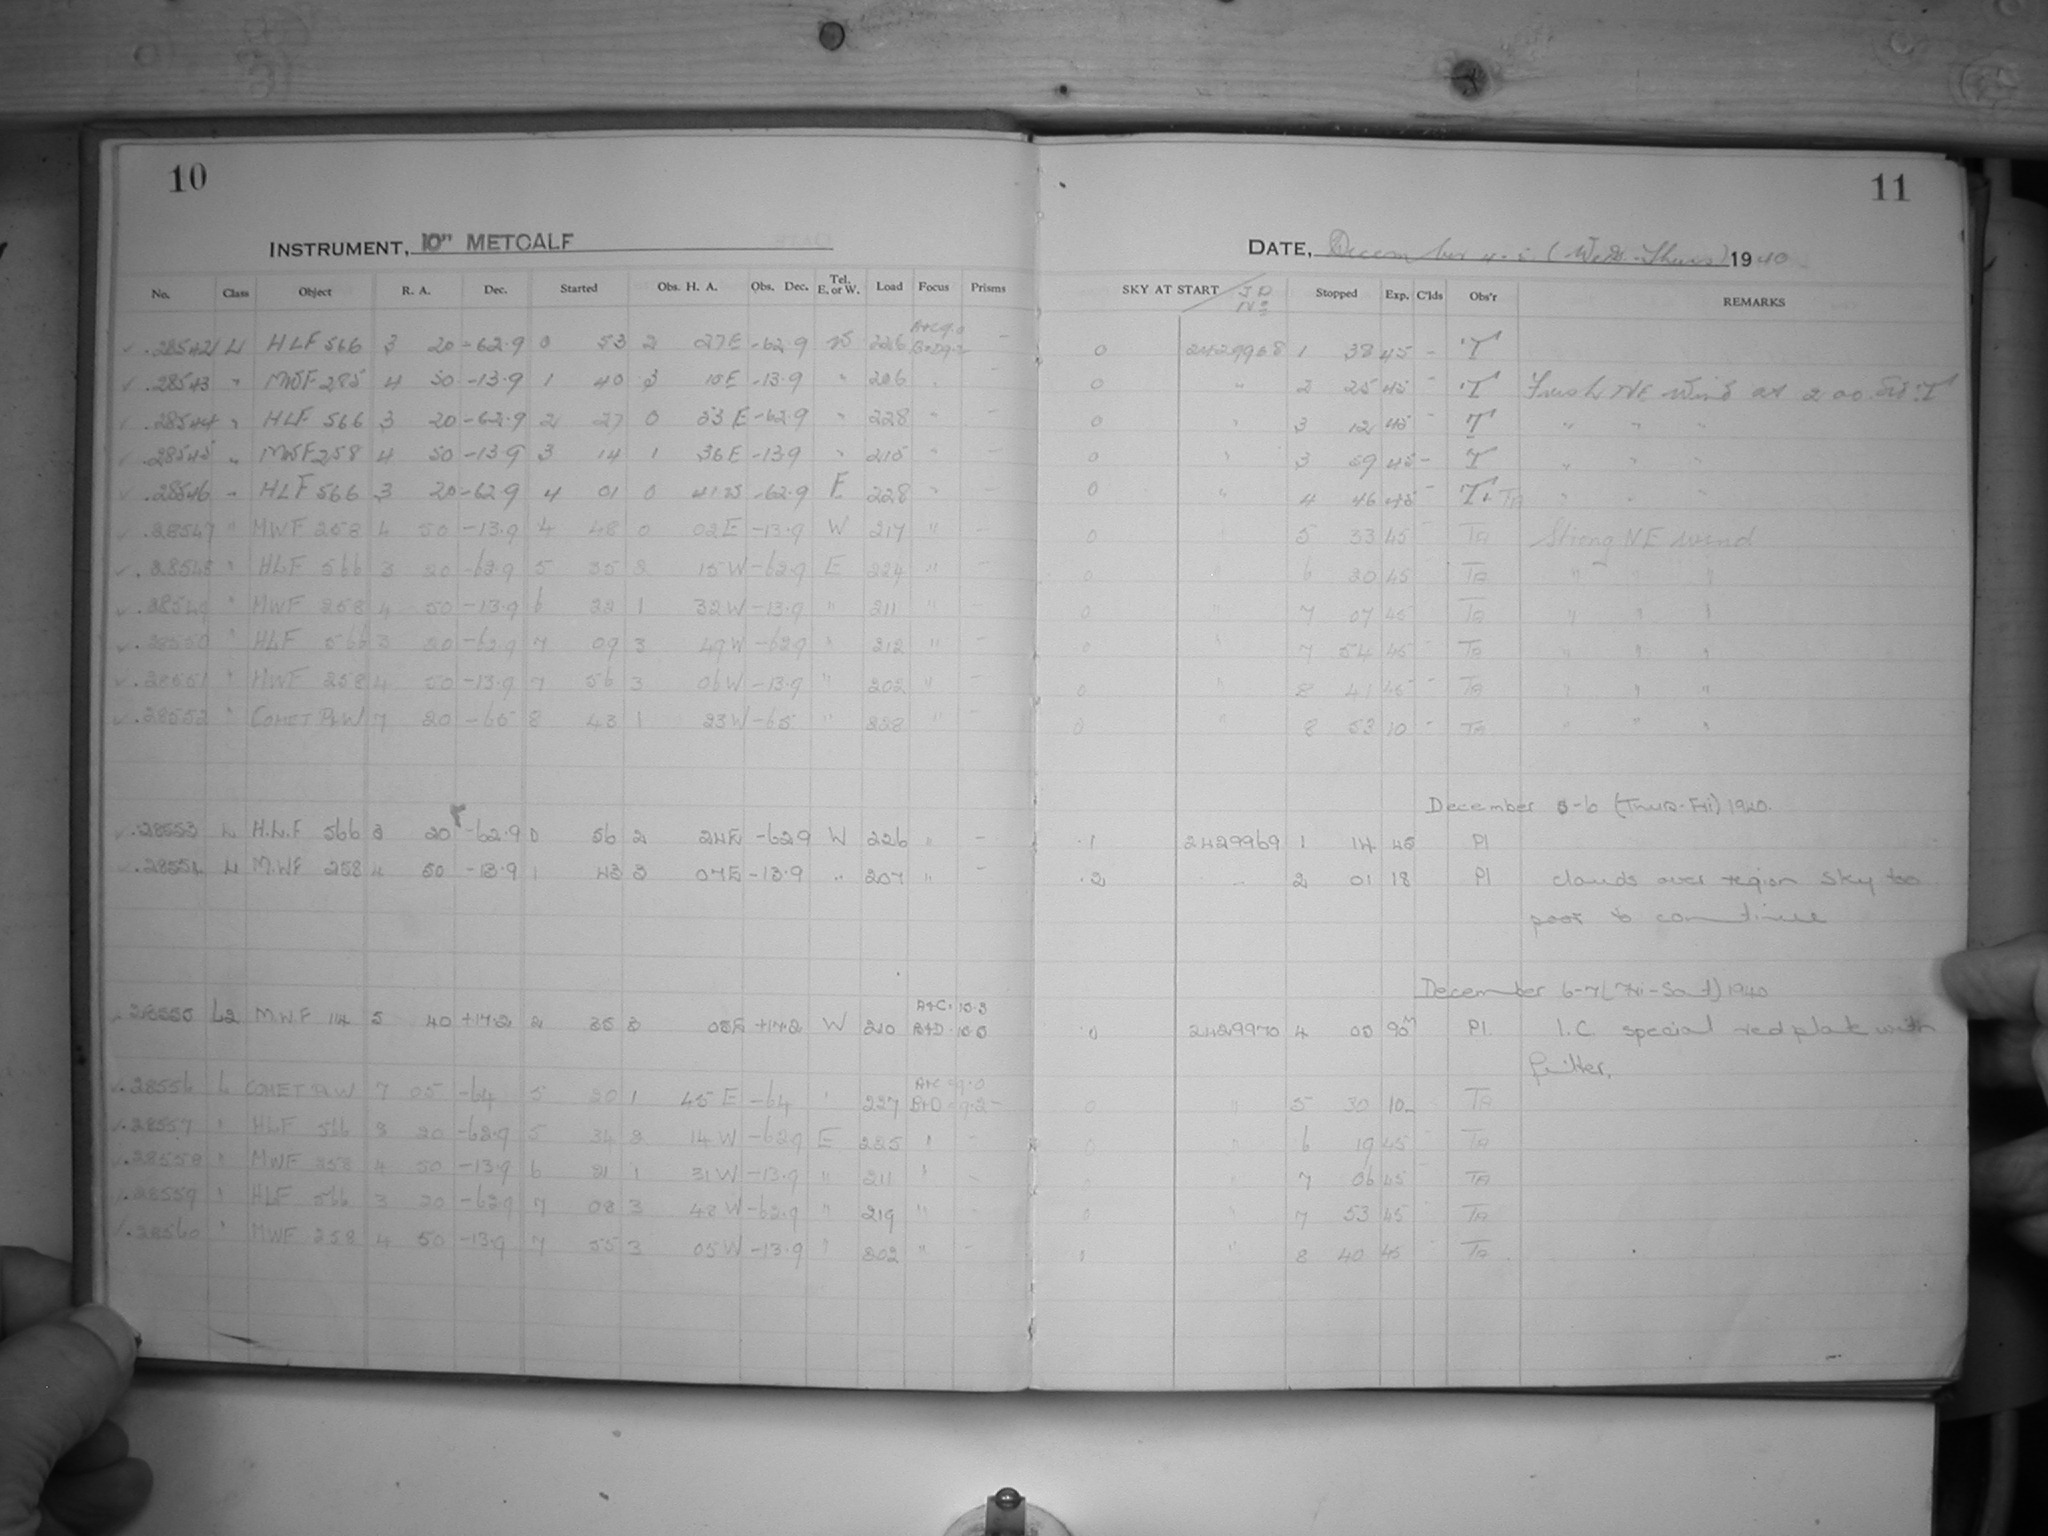 10
INSTRUMENT, 10" METCALF
No. Class Object R. A. Dec. Started Obs. H. A. Obs. Dec. Tel. E. or W. Load Focus Prisms
.28542 L HLF 566 3 20 -62.9 0 53 2 27E -62.9 W 226 A+C 9.0 B+D 9.2 -
.28543 " MWF 285 4 50 -13.9 1 40 3 10E -13.9 " 206 " -
.28544 " HLF 566 3 20 -62.9 2 27 0 53 E -62.9 " 228 " -
.28545 " MWF 258 4 50 -13.9 3 14 1 36E -13.9 " 215 " -
.28546 " HLF 566 3 20 -62.9 4 01 0 41W -62.9 E 228 " -
.28547 " MWF 258 4 50 -13.9 4 48 0 02E -13.9 W 217 " -
.28548 " HLF 566 3 20 -62.9 5 35 2 15W -62.9 E 224 " -
.28549 " MWF 258 4 50 -13.9 6 22 1 32W -13.9 " 211 " -
.28550 " HLF 566 3 20 -62.9 7 09 3 49W -62.9 " 212 " -
.28551 " MWF 258 4 50 -13.9 7 56 3 06W -13.9 " 202 " -
.28552 " COMET P&W 7 20 -65 8 43 1 23W -65 " 228 " -
.28553 L H.L.F 566 3 20 -62.9 0 56 2 24E -62.9 W 226 " -
.28554 L M.WF 258 4 50 -13.9 1 43 3 07E -13.9 " 207 " -
.28555 L2 M.W.F 114 5 40 +17.2 2 35 3 05E +17.2 W 210 A+C. 10.3 B+D. 10.5
.28556 L COMET P&W 7 05 -64 5 20 1 45 E -64 " 227 A+C 9.0 B+D 9.2 -
.28557 " HLF 566 3 20 -62.9 5 34 2 14 W -62.9 E 225 " -
.28558 " MWF 258 4 50 -13.9 6 21 1 31W -13.9 " 211 " -
.28559 " HLF 566 3 20 -62.9 7 08 3 48 W -62.9 " 219 " -
.28560 " MWF 258 4 50 -13.9 7 55 3 05W -13.9 " 202 " -
11
DATE, December 4-5 (Wed.-Thurs) 1940
SKY AT START J D No. Stopped Exp. C'lds Obs'r REMARKS
0 2429968 1 38 45 - T
0 " 2 25 45 - T Fresh NE wind at 2 00
0 " 3 12 45 T " " "
0 " 3 59 45 - T " " "
0 " 4 46 45 - T. TA " " "
0 " 5 33 45 TA Strong NE wind
0 " 6 20 45 TA " " "
0 " 7 07 45 TA " " "
0 " 7 54 45 - TA " " "
0 " 8 41 45 - TA " " "
0 " 8 53 10 - TA " " "
December 5-6 (Thurs-Fri) 1940.
.1 2429969 1 14 45 Pl
.2 " 2 01 18 Pl clouds over region Sky too
poor to continue
December 6-7 (Fri-Sat) 1940
0 2429970 4 05 90m Pl. I.C special red plate with
filter.
0 " 5 30 10 TA
0 " 6 19 45 TA
0 " 7 06 45 TA
0 " 7 53 45 TA
" 8 40 45 TA